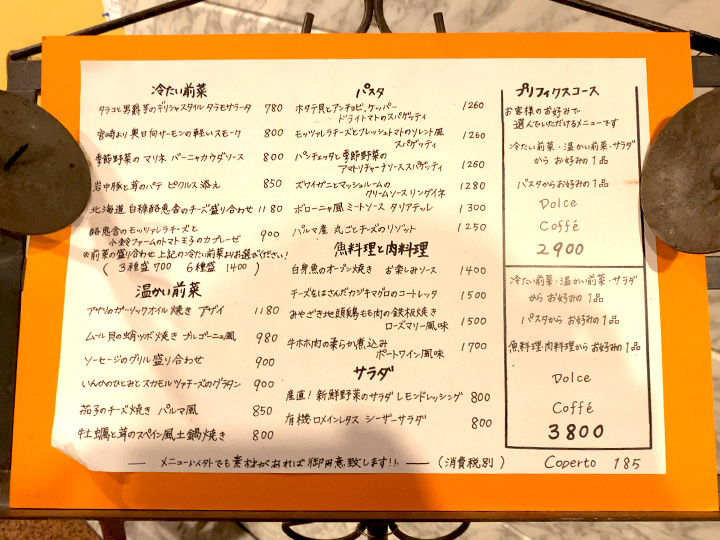 冷たい前菜
タラコと男爵芋のギリシャスタイル タラモサラータ 780
宮崎より 奥日向サーモンの軽いスモーク 800
季節野菜の マリネ バーニャカウダソース 800
岩中豚と茸のパテ ピクルス添え 850
北海道 白糠酪恵舎のチーズ盛り合わせ 1180
酪恵舎のモッツァレラチーズと
小鈴ファームのトマト王子のカプレーゼ 900
*前菜の盛り合わせ 上記の冷たい前菜よりお選びください!
( 3種盛 700 6種盛 1400 )
温かい前菜
アサリのガーリックオイル焼き アザイ 1180
ムール貝の蛸ツボ焼き ブルゴーニュ風 980
ソーセージのグリル盛り合わせ 900
いんかのひとみとスカモルツァチーズのグラタン 900
茄子のチーズ焼き パルマ風 850
牡蠣と茸のスペイン風土鍋焼き 800
パスタ
ホタテ貝とアンチョビ、ケッパー
ドライトマトのスパゲッティ 1260
モッツァレラチーズとフレッシュトマトのソレント風
スパゲッティ 1260
パンチェッタと季節野菜の
アマトリチャーナソース スパゲッティ 1260
ズワイガニとマッシュルームの
クリームソース リングイネ 1280
ボローニャ風 ミートソース タリアテッレ 1300
パルマ産 丸ごとチーズのリゾット 1250
魚料理と肉料理
白身魚のオーブン焼き お楽しみソース 1400
チーズをはさんだカジキマグロのコートレッタ 1500
みやざき地頭鶏もも肉の鉄板焼き
ローズマリー風味 1500
牛ホホ肉の柔らか煮込み
ポートワイン風味 1700
サラダ
産直! 新鮮野菜のサラダ レモンドレッシング 800
有機ロメインレタス シーザーサラダ 800
プリフィクスコース
お客様のお好みで
選んでいただけるメニューです
冷たい前菜・温かい前菜・サラダ
から お好みの1品
パスタからお好みの1品
Dolce
Coffé
2900
冷たい前菜・温かい前菜・サラダ
から お好みの1品
パスタから お好みの1品
魚料理・肉料理からお好みの1品
Dolce
Coffé
3800
― メニュー以外でも素材があれば御用意致します!! ― (消費税別) Coperto 185